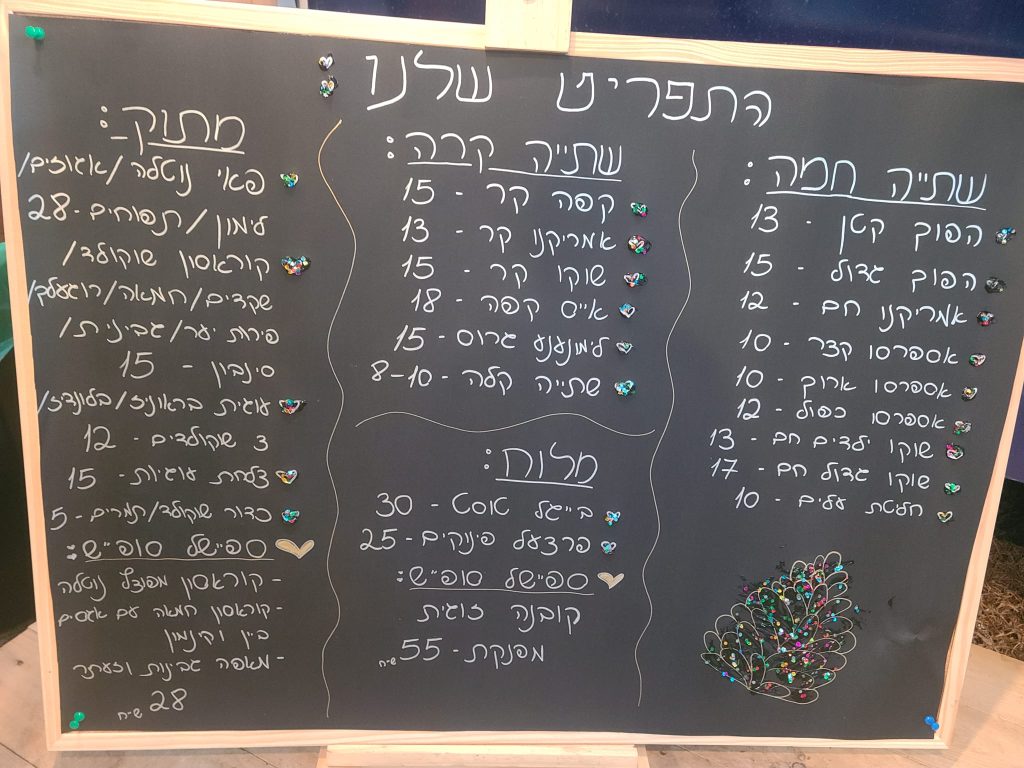 התפריט שלנו:
שתייה חמה:
הפוך קטן - 13
הפוך גדול - 15
אמריקנו חם - 12
אספרסו קצר - 10
אספרסו ארוך - 10
אספרסו כפול - 12
שוקו ילדים חם - 13
שוקו גדול חם - 17
חליטת עלים - 10
שתייה קרה:
קפה קר - 15
אמריקנו קר - 13
שוקו קר - 15
אייס קפה - 18
לימונענע גרוס - 15
שתייה קלה - 8-10
מלוח:
בייגל טוסט - 30
פרצעל פינוקים - 25
ספיישל סופ״ש:
קובנה זוגית
מפנקת - 55 ש״ח
מתוק:
פאי נוטלה/אגוזים/
לימון/תפוחים - 28
קוראסון שוקולד/
שקדים/חמאה/רוגעלך/
פירות יער/גבינית/
סינבון - 15
עוגית בראוניז/בלונדיז/
3 שוקולדים - 12
צלחת עוגיות - 15
כדור שוקולד/תמרים - 5
ספיישל סופ״ש:
- קוראסון מפוצץ נוטלה
- קוראסון חמאה עם אגסים
ביין וקינמון
- מאפה גבינות וזעתר
28 ש״ח